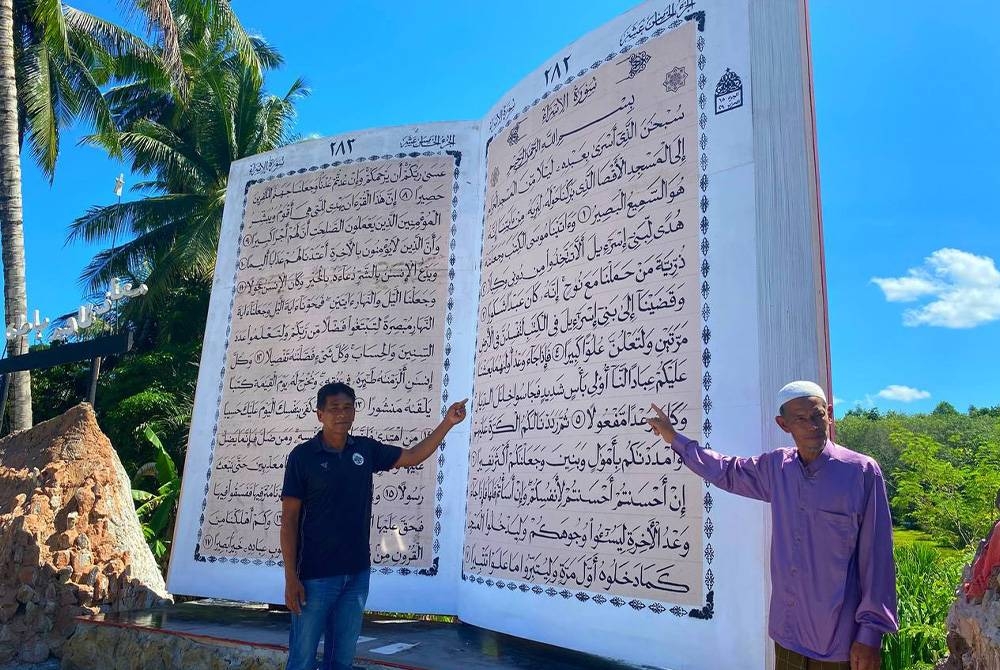 سورة الإسراء
٢٨٢
الجزء الخامس عشر
سورة الإسراء
بسم الله الرحمن الرحيم
سُبْحَٰنَ الَّذِي أَسْرَىٰ بِعَبْدِهِ لَيْلًا مِنَ الْمَسْجِدِ
إِلَى الْمَسْجِدِ الْأَقْصَا الَّذِي بَٰرَكْنَا حَوْلَهُ لِنُرِيَهُ مِنْ ءَايَٰتِنَا إِنَّهُ
هُوَ السَّمِيعُ الْبَصِيرُ ١ وَءَاتَيْنَا مُوسَى الْكِتَٰبَ وَجَعَلْنَٰهُ
هُدًى لِبَنِي إِسْرَٰءِيلَ أَلَّا تَتَّخِذُوا مِنْ دُونِي وَكِيلًا
ذُرِّيَّةَ مَنْ حَمَلْنَا مَعَ نُوحٍ إِنَّهُ كَانَ عَبْدًا شَكُورًا
وَقَضَيْنَا إِلَىٰ بَنِي إِسْرَٰءِيلَ فِي الْكِتَٰبِ لَتُفْسِدُنَّ فِي الْأَرْضِ
مَرَّتَيْنِ وَلَتَعْلُنَّ عُلُوًّا كَبِيرًا ٤ فَإِذَا جَاءَ وَعْدُ أُولَىٰهُمَا بَعَثْنَا
عَلَيْكُمْ عِبَادًا لَنَا أُولِي بَأْسٍ شَدِيدٍ فَجَاسُوا خِلَٰلَ الدِّيَارِ
وَكَانَ وَعْدًا مَفْعُولًا ٥ ثُمَّ رَدَدْنَا لَكُمُ الْكَرَّةَ عَلَيْهِمْ
وَأَمْدَدْنَٰكُمْ بِأَمْوَٰلٍ وَبَنِينَ وَجَعَلْنَٰكُمْ أَكْثَرَ نَفِيرًا
إِنْ أَحْسَنْتُمْ أَحْسَنْتُمْ لِأَنْفُسِكُمْ وَإِنْ أَسَأْتُمْ فَلَهَا فَإِذَا جَاءَ
وَعْدُ الْأٰخِرَةِ لِيَسُـُٔوا وُجُوهَكُمْ وَلِيَدْخُلُوا الْمَسْجِدَ
كَمَا دَخَلُوهُ أَوَّلَ مَرَّةٍ وَلِيُتَبِّرُوا مَا عَلَوْا تَتْبِيرًا
الجزء الخامس عشر
٢٨٣
سورة الإسراء
عَسَىٰ رَبُّكُمْ أَنْ يَرْحَمَكُمْ وَإِنْ عُدْتُمْ عُدْنَا وَجَعَلْنَا جَهَنَّمَ لِلْكَٰفِرِينَ
حَصِيرًا ٨ إِنَّ هَٰذَا الْقُرْءَانَ يَهْدِي لِلَّتِي هِيَ أَقْوَمُ وَيُبَشِّرُ
الْمُؤْمِنِينَ الَّذِينَ يَعْمَلُونَ الصَّٰلِحَٰتِ أَنَّ لَهُمْ أَجْرًا كَبِيرًا ٩
وَأَنَّ الَّذِينَ لَا يُؤْمِنُونَ بِالْأٰخِرَةِ أَعْتَدْنَا لَهُمْ عَذَابًا أَلِيمًا
وَيَدْعُ الْإِنْسَٰنُ بِالشَّرِّ دُعَاءَهُ بِالْخَيْرِ وَكَانَ الْإِنْسَٰنُ عَجُولًا
وَجَعَلْنَا الَّيْلَ وَالنَّهَارَ ءَايَتَيْنِ فَمَحَوْنَا ءَايَةَ الَّيْلِ وَجَعَلْنَا ءَايَةَ
النَّهَارِ مُبْصِرَةً لِتَبْتَغُوا فَضْلًا مِنْ رَبِّكُمْ وَلِتَعْلَمُوا عَدَدَ
السِّنِينَ وَالْحِسَابَ وَكُلَّ شَيْءٍ فَصَّلْنَٰهُ تَفْصِيلًا ١٢ وَكُلَّ
إِنْسَٰنٍ أَلْزَمْنَٰهُ طَٰئِرَهُ فِي وَنُخْرِجُ لَهُ يَوْمَ الْقِيَٰمَةِ كِتَٰبًا
يَلْقَىٰهُ مَنْشُورًا كَفَىٰ بِنَفْسِكَ الْيَوْمَ عَلَيْكَ حَسِيبًا
مَنِ اهْتَدَىٰ وَمَنْ ضَلَّ فَإِنَّمَا يَضِلُّ
مُعَذِّبِينَ حَتَّىٰ نَبْعَثَ
رَسُولًا ١٥ فَفَسَقُوا فِيهَا
فَحَقَّ عَلَيْهَا وَكَمْ أَهْلَكْنَا مِنَ
الْقُرُونِ مِنْ